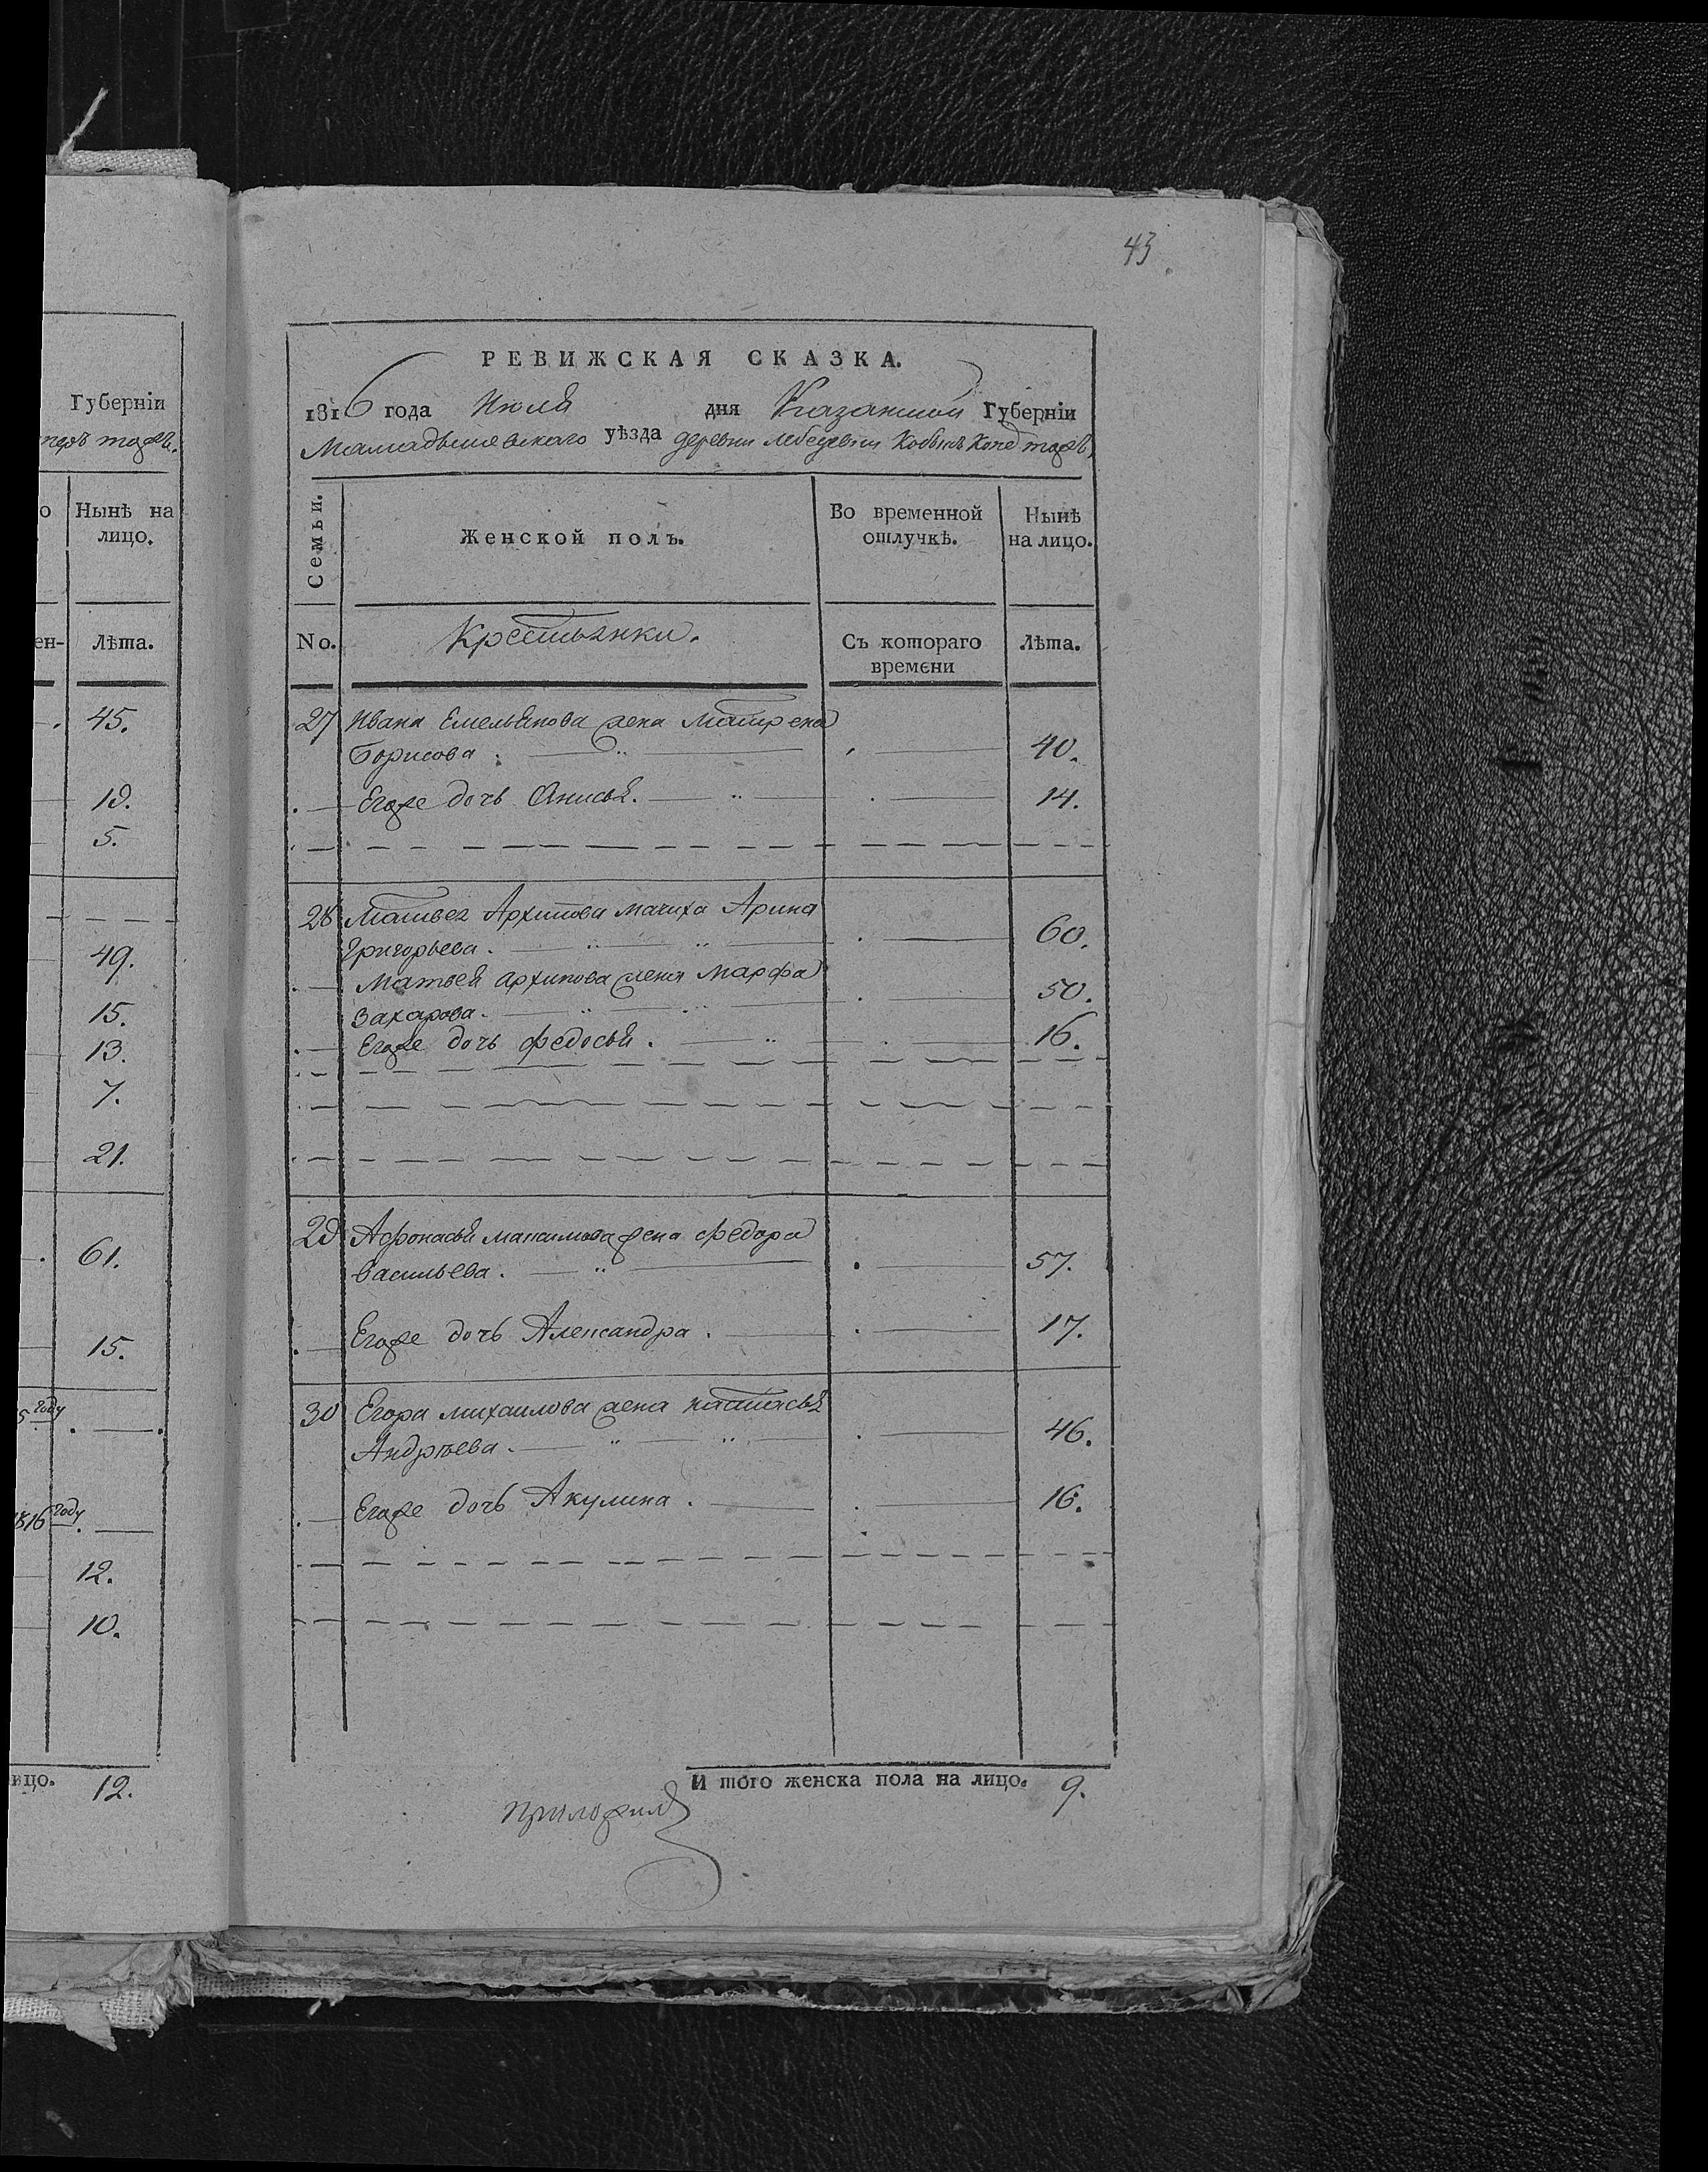 43
РЕВИЖСКАЯ СКАЗКА.
1816 года Июля дня Казанской Губерніи
Мамадышевскаго уѣзда деревни Лебедевки Кобыкъ Копе тожъ,
Семьи.
Женской полъ.
Во временной отлучкѣ.
Нынѣ на лицо.
No.
Крестьянки.
Съ котораго времени
Лѣта.
27 Ивана Емельянова жена Матрена
Борисова. 40.
Егоже дочь Анисья. 14.
28 Матвея Архипова мачиха Арина
Григорьева. 60.
Матвея Архипова жена Марфа
Захарова. 50.
Егоже дочь Федосья. 16.
29 Афонасья Максимова жена Федора
Васильева. 57.
Егоже дочь Александра. 17.
30 Егора Михаилова жена Настасья
Андрѣева. 46.
Егоже дочь Акулина. 16.
И того женска пола на лицо. 9.
приложилъ
Губерніи
тожъ.
Нынѣ на
лицо.
Лѣта.
45.
19.
5.
49.
15.
13.
7.
21.
61.
15.
5 году
1816 году.
12.
10.
ицо. 12.